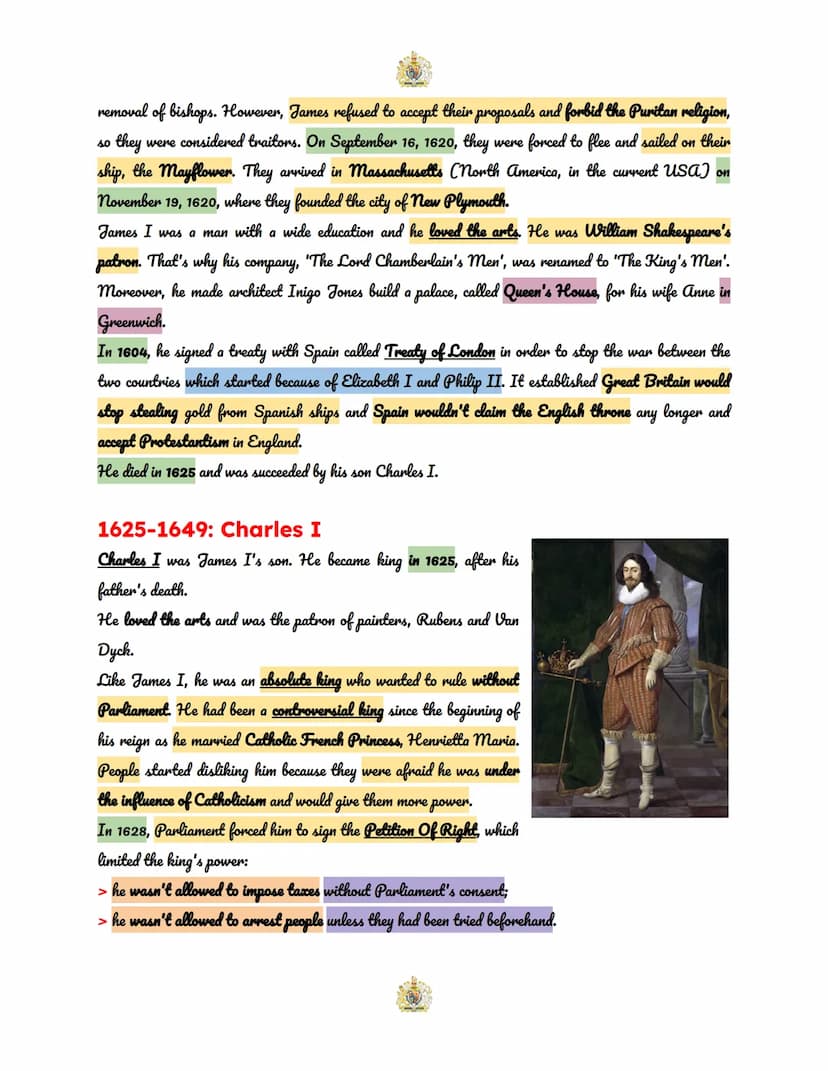 removal of bishops. However, James refused to accept their proposals and forbid the Puritan religion,
so they were considered traitors. On September 16, 1620, they were forced to flee and sailed on their
ship, the Mayflower. They arrived in Massachusetts (North America, in the current USA) on
November 19, 1620, where they founded the city of New Plymouth.
James I was a man with a wide education and he loved the arts. He was William Shakespeare's
patron. That's why his company, 'The Lord Chamberlain's Men', was renamed to 'The King's Men'.
Moreover, he made architect Inigo Jones build a palace, called Queen's House, for his wife Anne in
Greenwich.
In 1604, he signed a treaty with Spain called Treaty of London in order to stop the war between the
two countries which started because of Elizabeth I and Philip II. It established Great Britain would
stop stealing gold from Spanish ships and Spain wouldn't claim the English throne any longer and
accept Protestantism in England.
He died in 1625 and was succeeded by his son Charles I.
1625-1649: Charles I
Charles I was James I's son. He became king in 1625, after his
father's death.
He loved the arts and was the patron of painters, Rubens and Van
Dyck.
Like James I, he was an absolute king who wanted to rule without
Parliament. He had been a controversial king since the beginning of
his reign as he married Catholic French Princess, Henrietta Maria.
People started disliking him because they were afraid he was under
the influence of Catholicism and would give them more power.
In 1628, Parliament forced him to sign the Petition Of Right, which
limited the king's power:
> he wasn't allowed to impose taxes without Parliament's consent;
> he wasn't allowed to arrest people unless they had been tried beforehand.